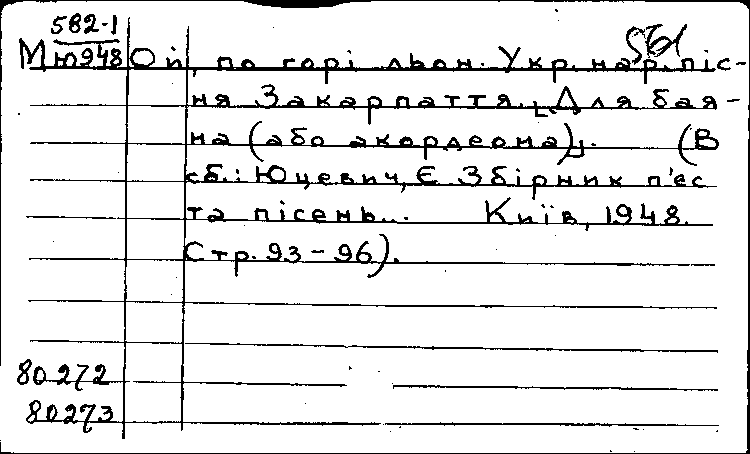 582-1
М ю948 Ой, по горі льон. Укр. нар. піс-
ня Закарпаття. [Для бая-
на (або акордеона)]. (В
сб.: Юцевич, Є. Збірник п'єс
та пісень... Київ, 1948.
Стр. 93-96).
80272
80273